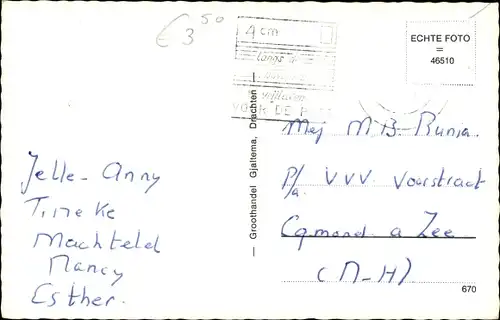 € 3 50
4 cm
langs de
VOOR DE P
ECHTE FOTO
=
46510
— Groothandel Gjaltema, Drachten —
Mej M B-Runia
p/a V.V.V. Voorstraat
Egmond a Zee
(N-H)
670
Jelle-Anny
Tineke
Machteld
Nancy
Esther.